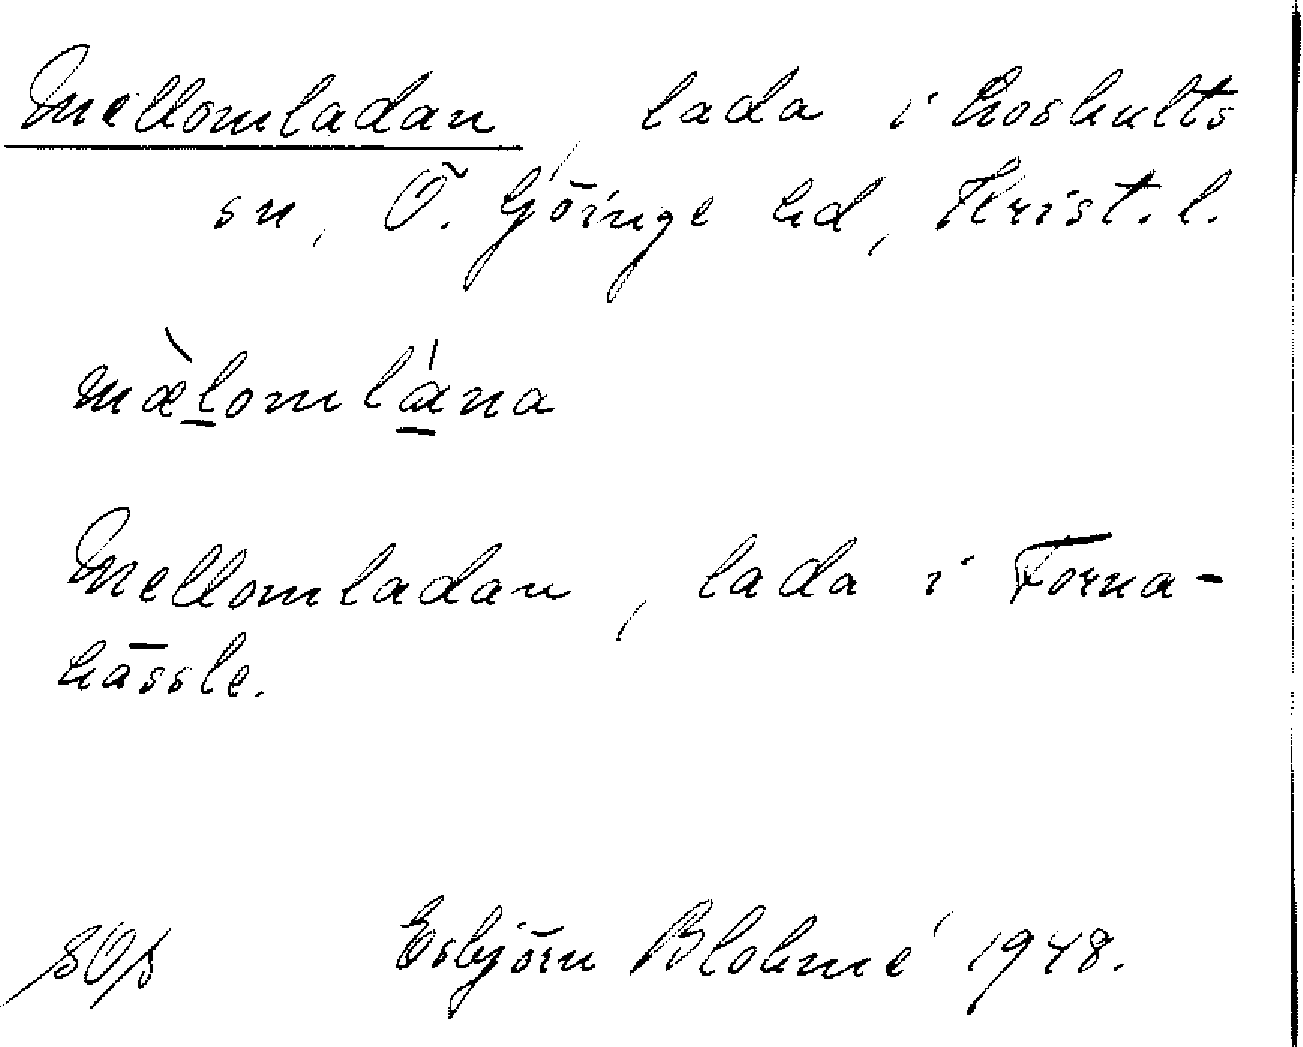 Mellomladan, lada i Loshults
sn, Ö. Göinge hd, Krist. l.
mæ̀lomlána
Mellomladan, lada i Forna-
hässle.
Esbjörn Blohmé 1948.